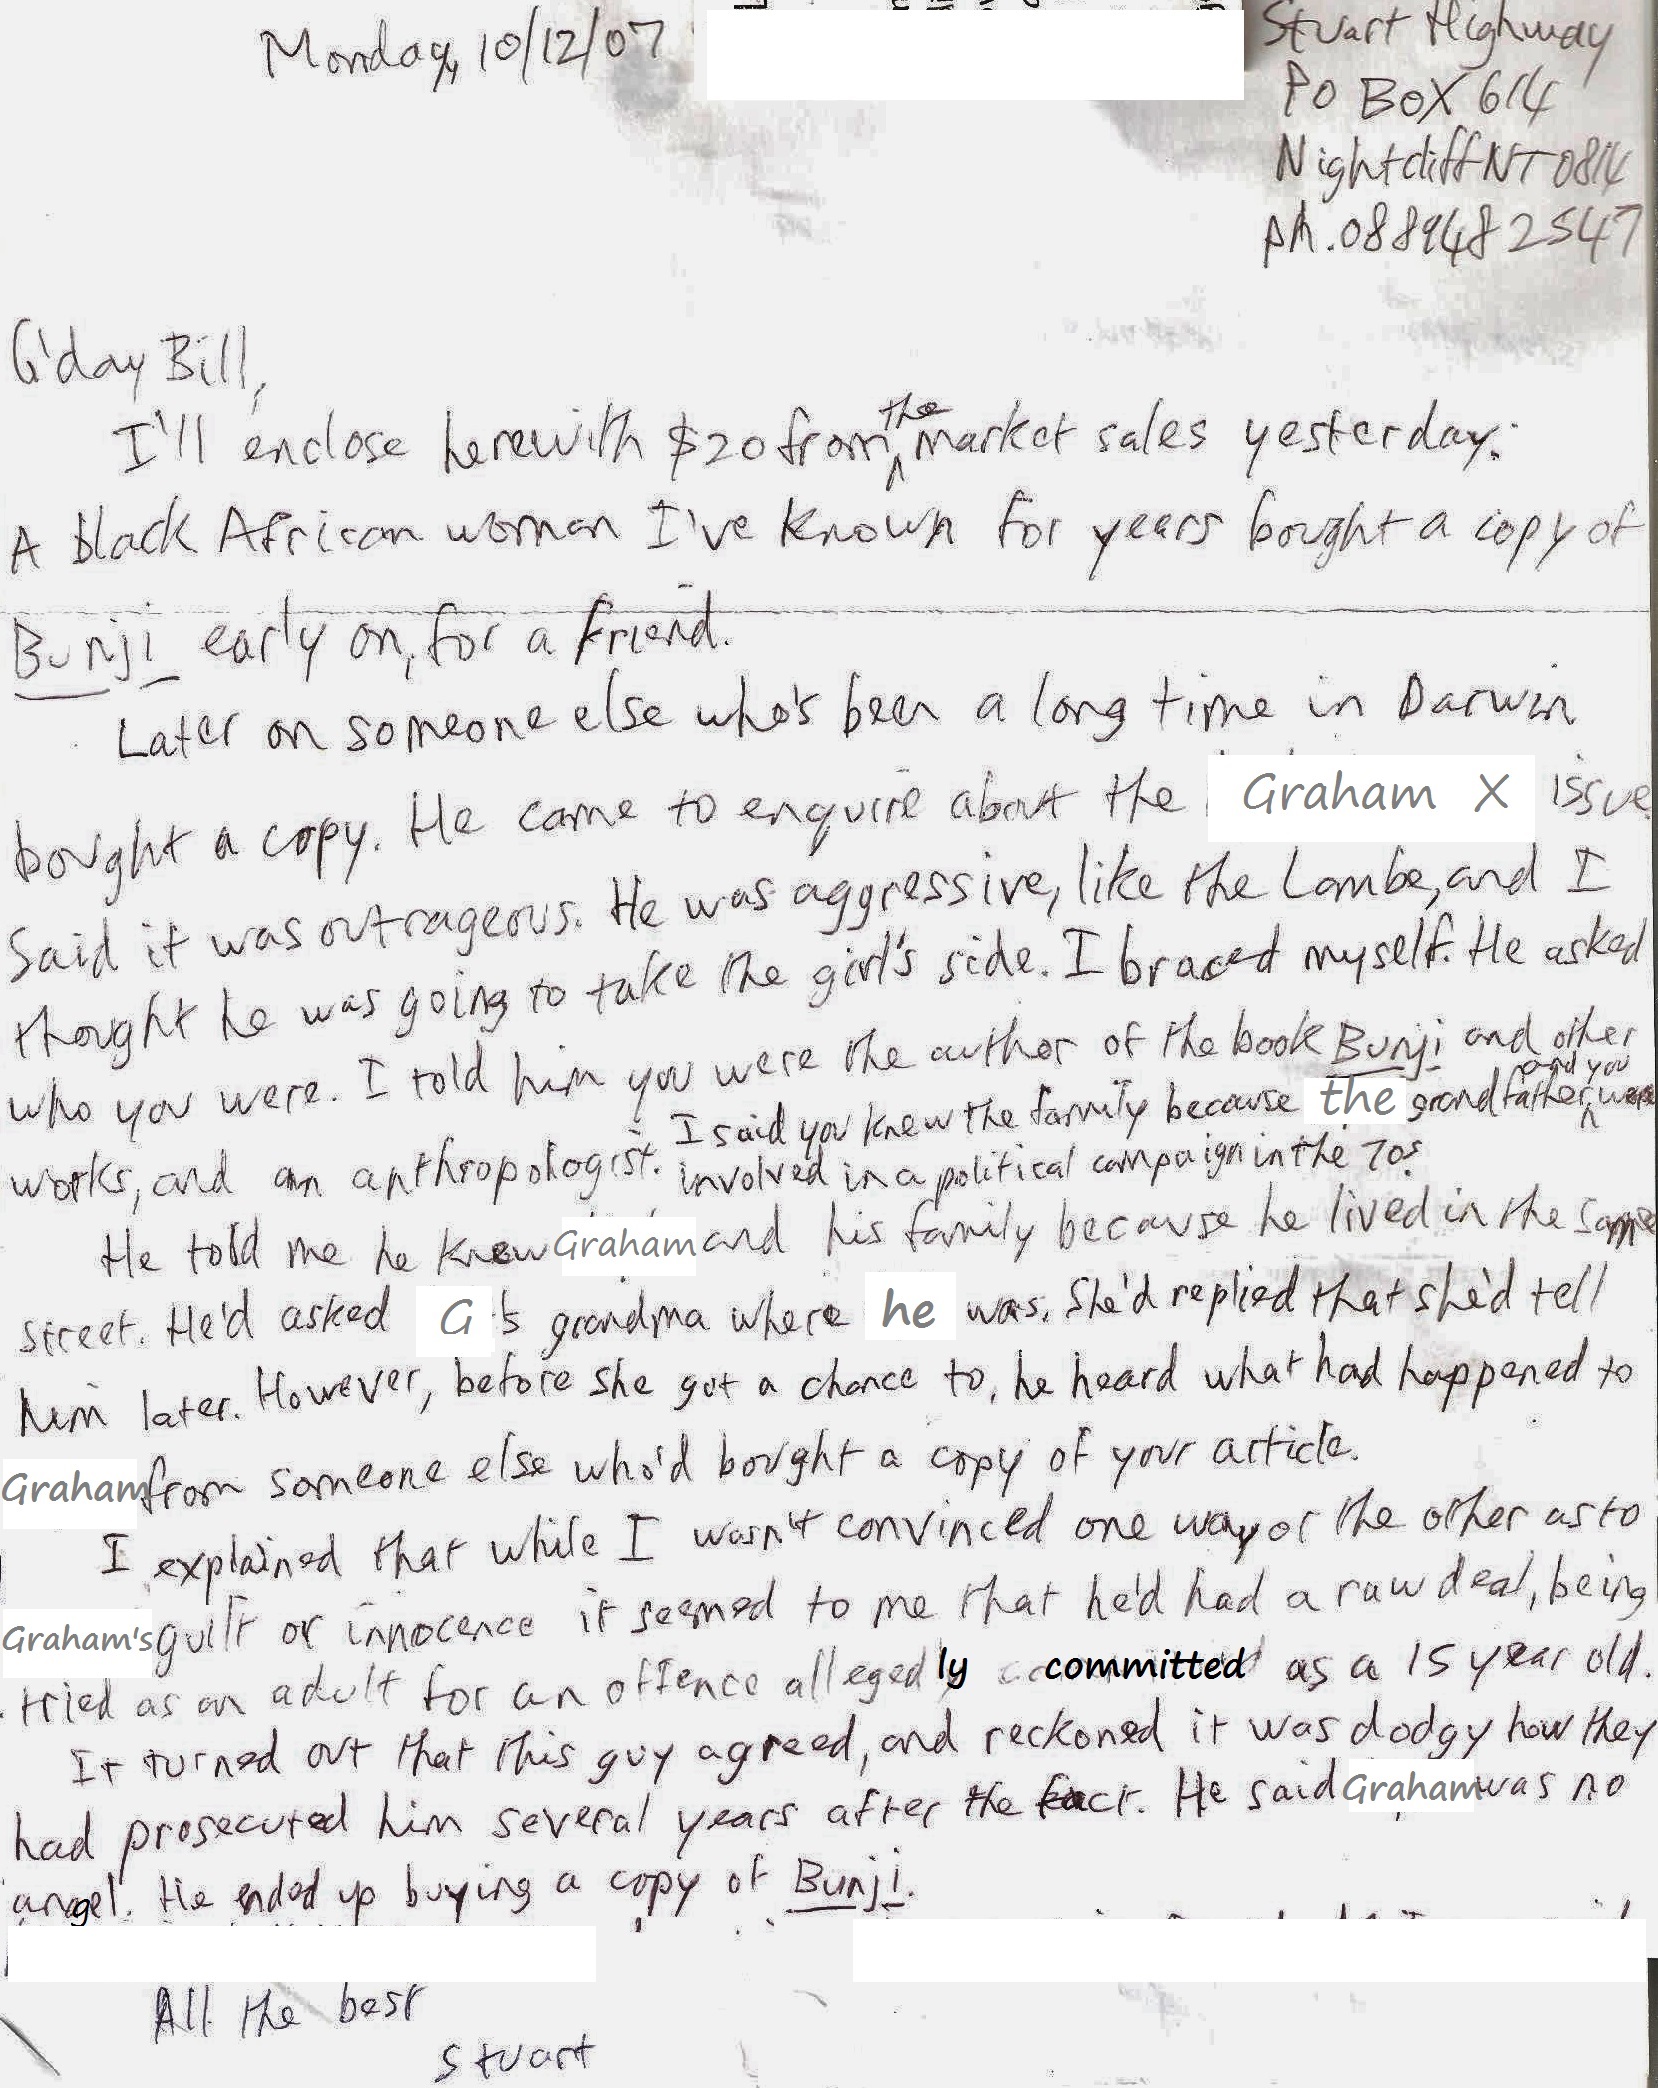 Monday, 10/12/07
Stuart Highway
PO BOX 614
Nightcliff NT 0814
ph. 0889482547
G'day Bill,
I'll enclose herewith $20 from the market sales yesterday.
A black African woman I've known for years bought a copy of
Bunji early on, for a friend.
Later on someone else who's been a long time in Darwin
bought a copy. He came to enquire about the Graham X issue.
Said it was outrageous. He was aggressive, like the Lambe, and I
thought he was going to take the girl's side. I braced myself. He asked
who you were. I told him you were the author of the book Bunji and other
works, and an anthropologist. I said you knew the family because the grandfather and you were
involved in a political campaign in the 70s.
He told me he knew Graham and his family because he lived in the same
street. He'd asked G's grandma where he was. She'd replied that she'd tell
him later. However, before she got a chance to, he heard what had happened to
Graham from someone else who'd bought a copy of your article.
I explained that while I wasn't convinced one way or the other as to
Graham's guilt or innocence it seemed to me that he'd had a raw deal, being
tried as an adult for an offence allegedly committed as a 15 year old.
It turned out that this guy agreed, and reckoned it was dodgy how they
had prosecuted him several years after the fact. He said Graham was no
angel. He ended up buying a copy of Bunji.
All the best
Stuart